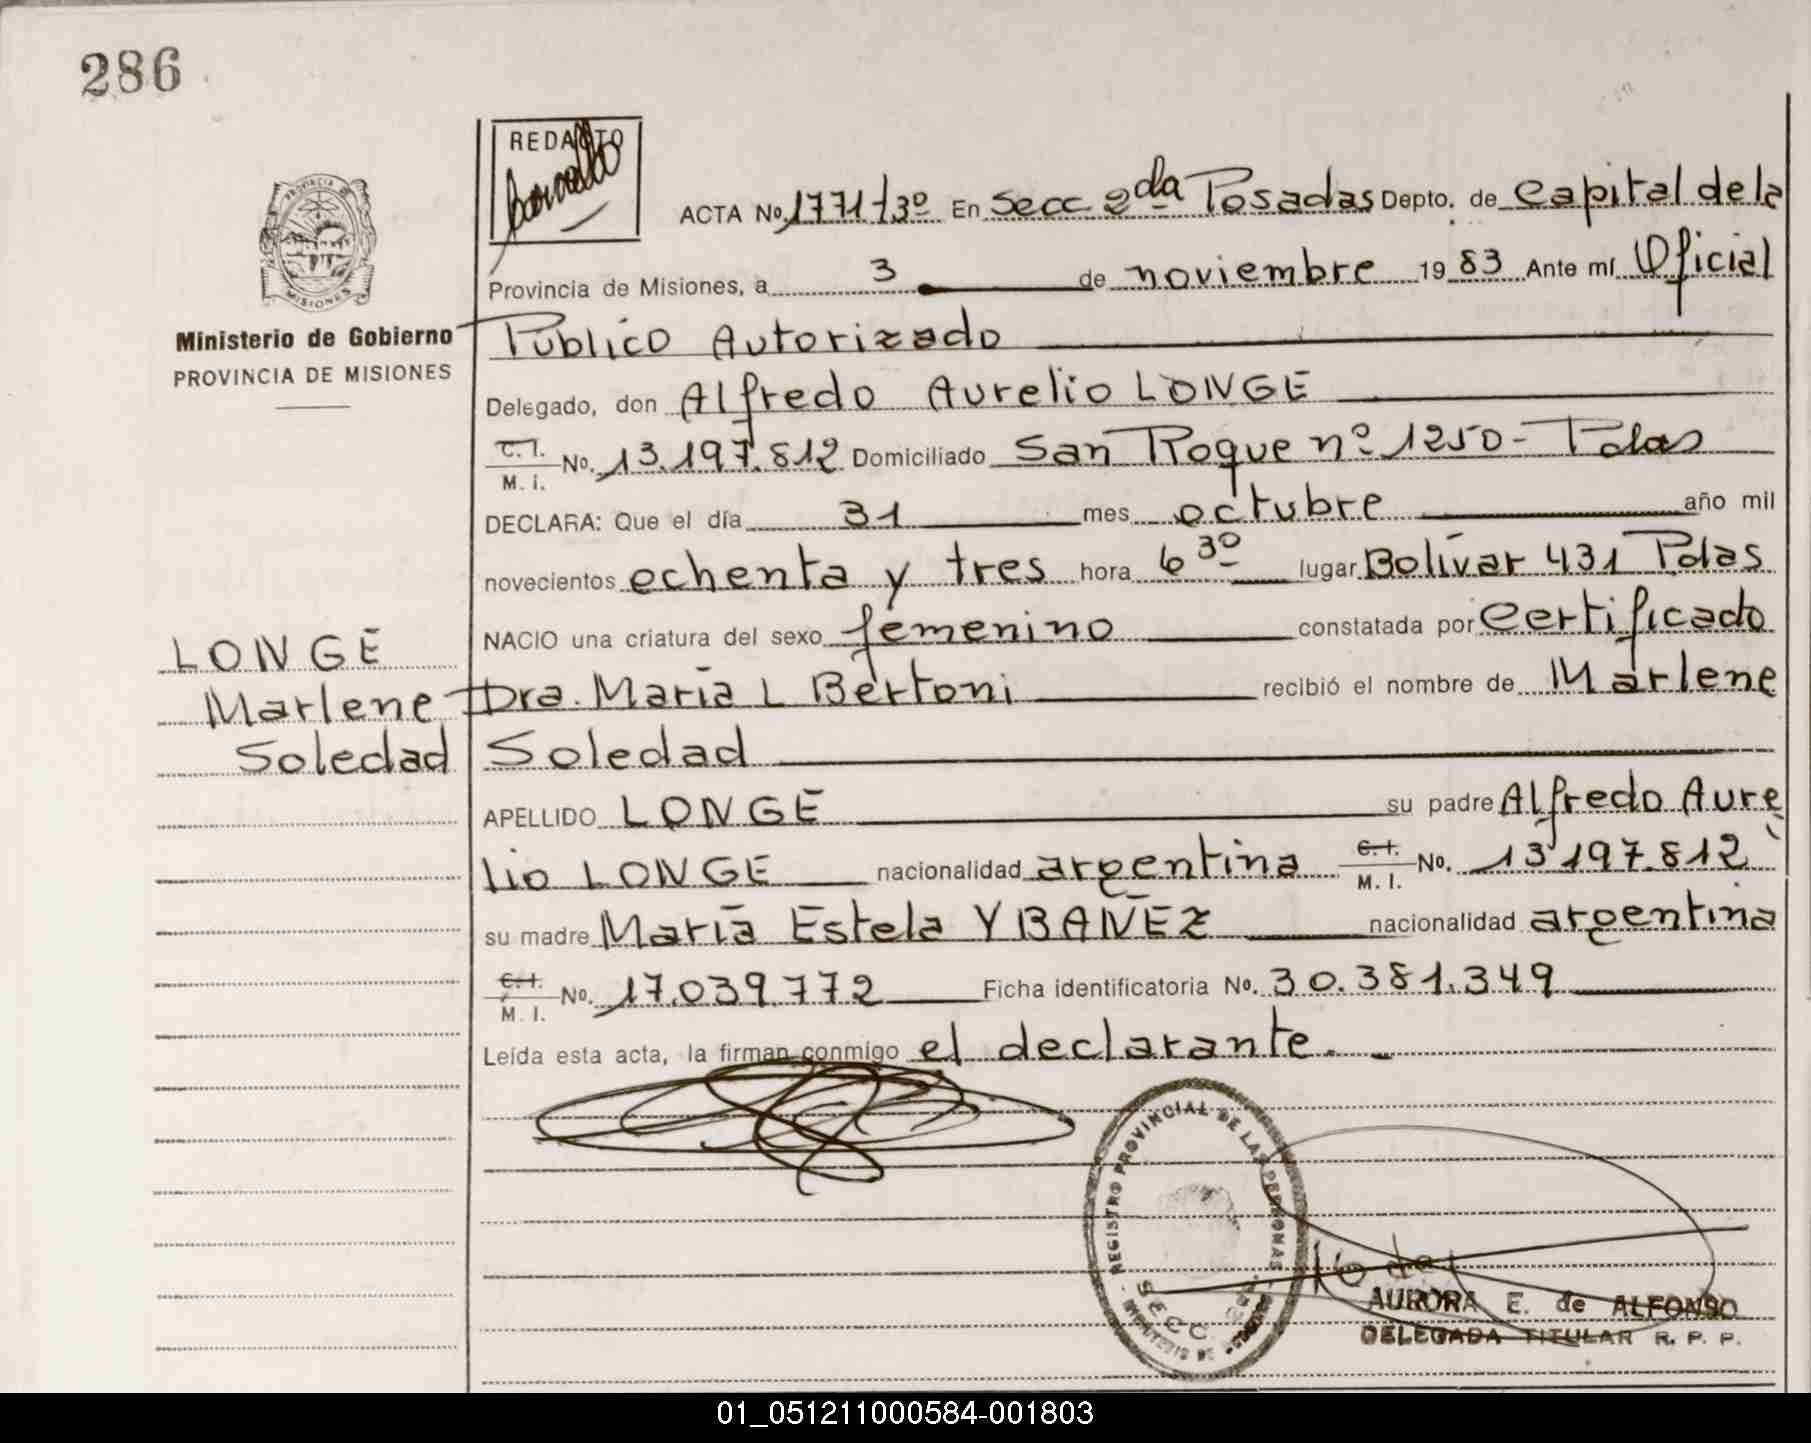 286
REDACTO
ACTA No. 1771 t 3º En Secc 2da Posadas Depto. de Capital de la
Provincia de Misiones, a 3 de noviembre 19 83 Ante mí Oficial
Ministerio de Gobierno
PROVINCIA DE MISIONES
Público Autorizado
Delegado, don Alfredo Aurelio LONGE
C.I. M. I. No. 13.197.812 Domiciliado San Roque nº 1250 - Pdas
DECLARA: Que el día 31 mes octubre año mil
novecientos ochenta y tres hora 6 30 lugar Bolívar 431 Pdas
NACIO una criatura del sexo femenino constatada por Certificado
LONGE
Marlene
Soledad
Dra. María L Bertoni recibió el nombre de Marlene
Soledad
APELLIDO LONGE su padre Alfredo Aure
lio LONGE nacionalidad argentina C.I. M. I. No. 13.197.812
su madre María Estela YBAÑEZ nacionalidad argentina
C.I. M. I. No. 17.039.772 Ficha identificatoria No. 30.381.349
Leída esta acta, la firman conmigo el declarante.
REGISTRO PROVINCIAL DE LAS PERSONAS
SECC
AURORA E. de ALFONSO
DELEGADA TITULAR R. P. P.
01_051211000584-001803